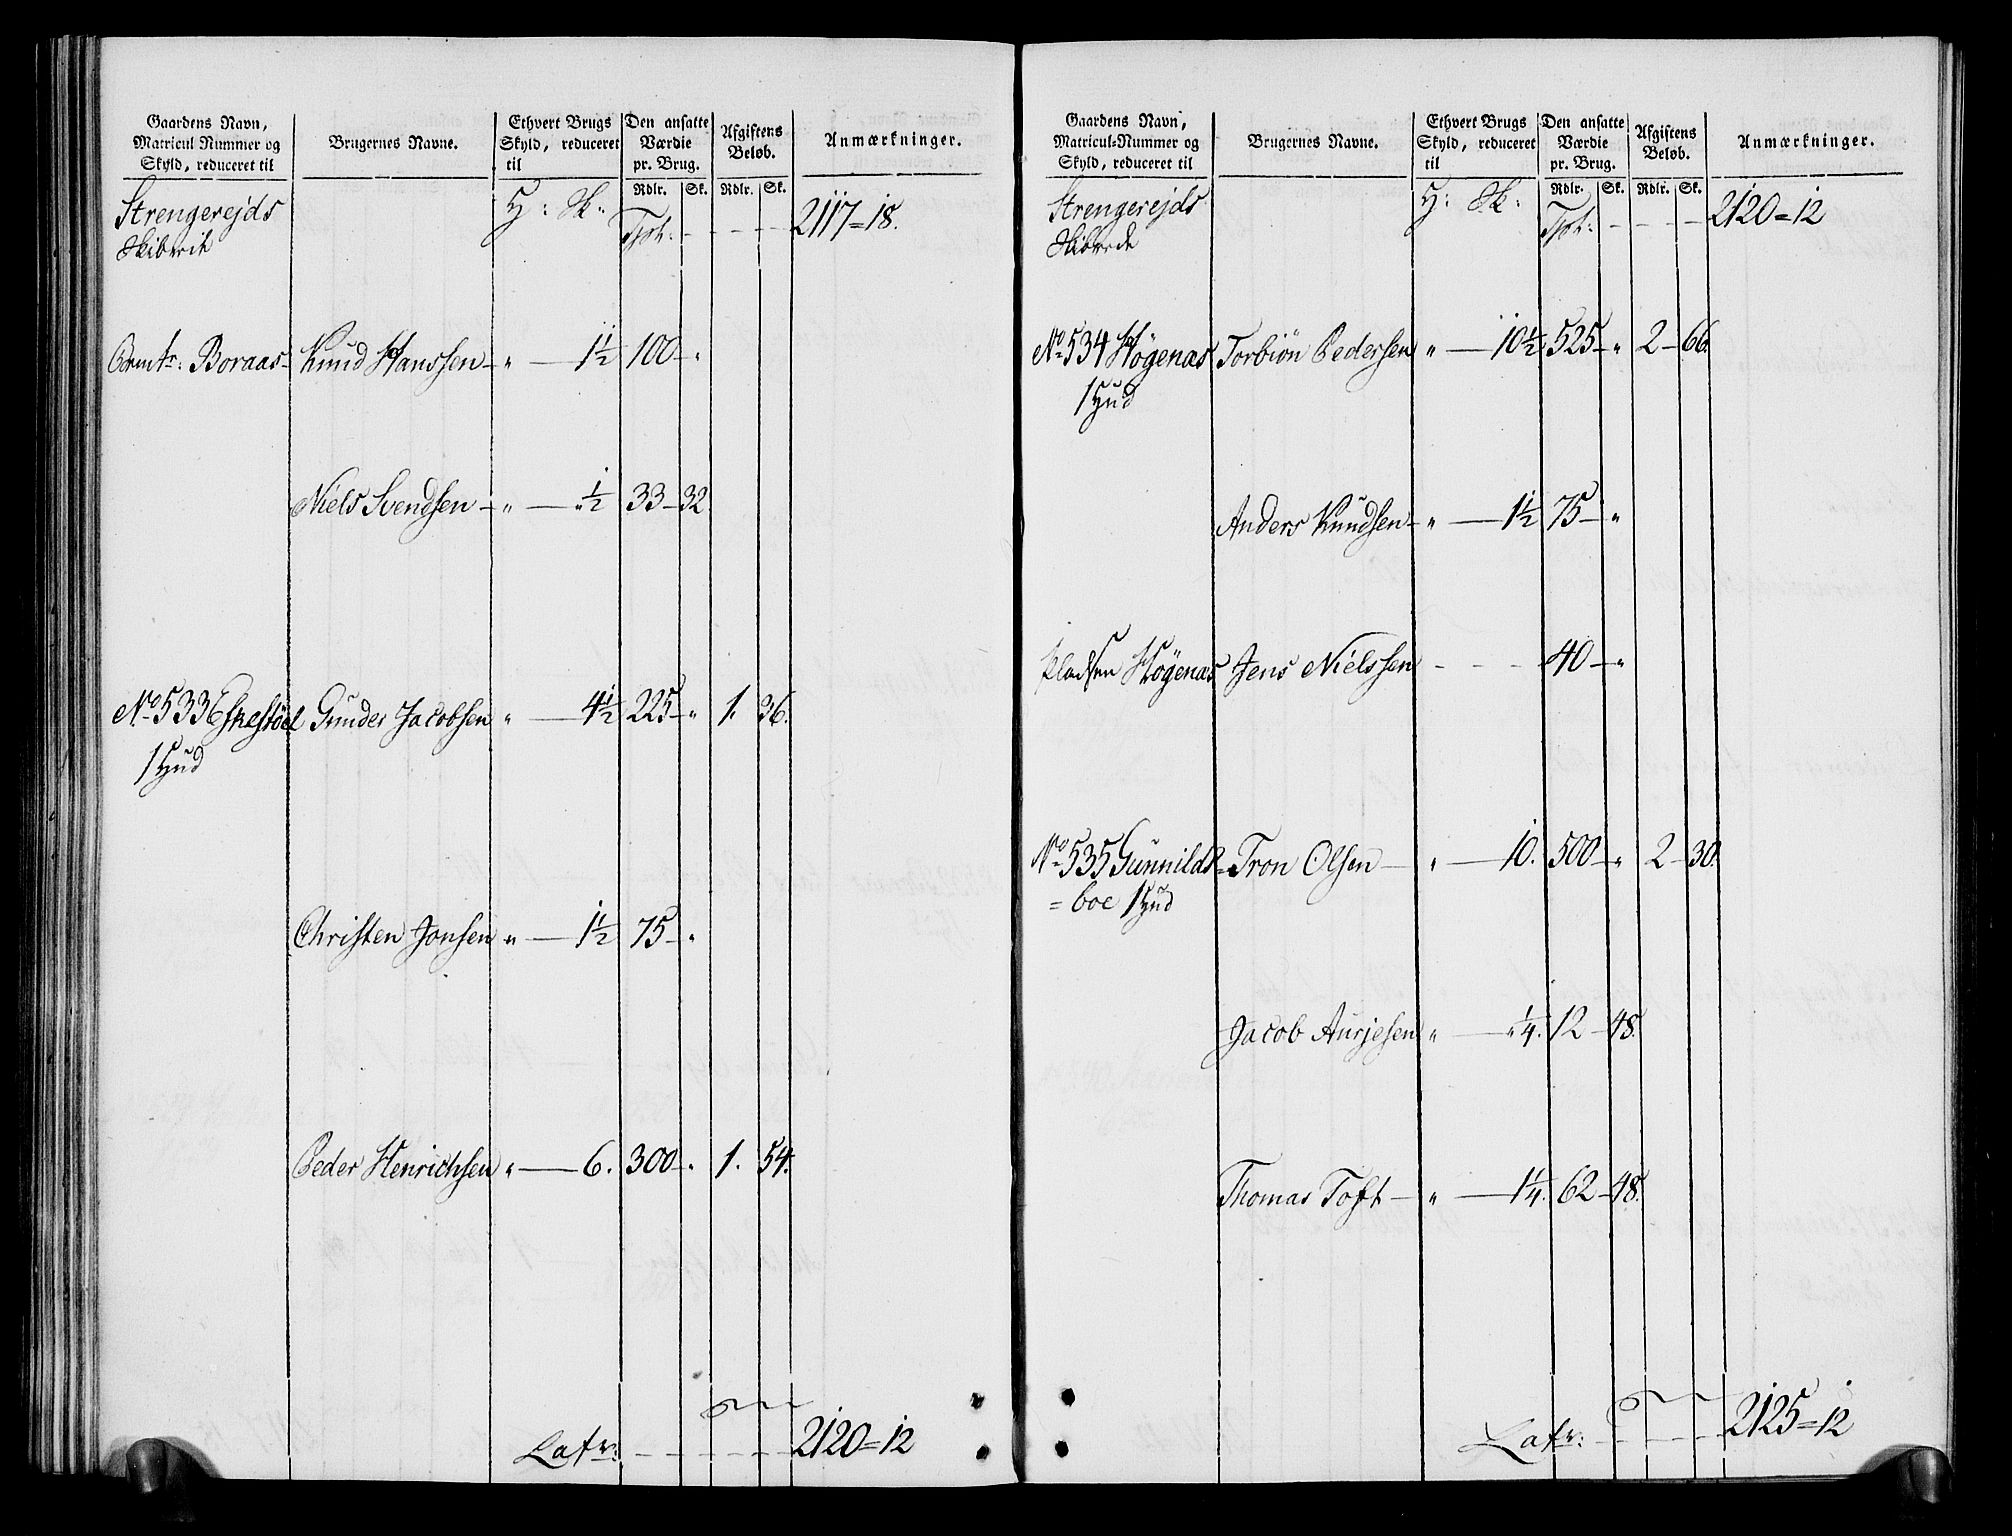 Gaardens Navn, Matricul Nummer og Skyld, reduceret til
Brugernes Navne.
Ethvert Brugs Skyld, reduceret til
Den ansatte Værdie pr. Brug.
Afgiftens Beløb.
Anmærkninger.
Rdlr. Sk. Rdlr. Sk.
Strengerejds H: Sk:
Skibrede Tpt: - - - - 2117=18.
Boraas- Knud Hanssen- „ — 1½ 100- „
Niels Svendsen - „ — „½ 33-32
No 533 Eskestöel Gunder Jacobsen „ — 4½ 225- „ 1. 36.
1 Hud
Christen Jonsen „ — 1½ 75- „
Peder Henrichsen „ — 6. 300- „ 1. 54.
Latr: - - - - 2120=12
Gaardens Navn, Matricul-Nummer og Skyld, reduceret til
Brugernes Navne.
Ethvert Brugs Skyld, reduceret til
Den ansatte Værdie pr. Brug.
Afgiftens Beløb.
Anmærkninger.
Rdlr. Sk. Rdlr. Sk.
Strengerejds H: Sk:
Skibrede Tpt: - - - - 2120=12
No 534 Högenas Torbiön Pedersen „ — 10½ 525- „ 2-66.
1 Hud
Anders Knudsen- „ — 1½ 75- „
Pladsen Högenas Jens Nielssen - - - - 40- „
No 535 Gunnilds= Tron Olsen — „ — 10. 500- „ 2-30.
=boe 1 Hud
Jacob Aurjesen „ — „¼. 12-48.
Thomas Toft — „ — 1¼. 62-48.
Latr: - - - - 2125=12